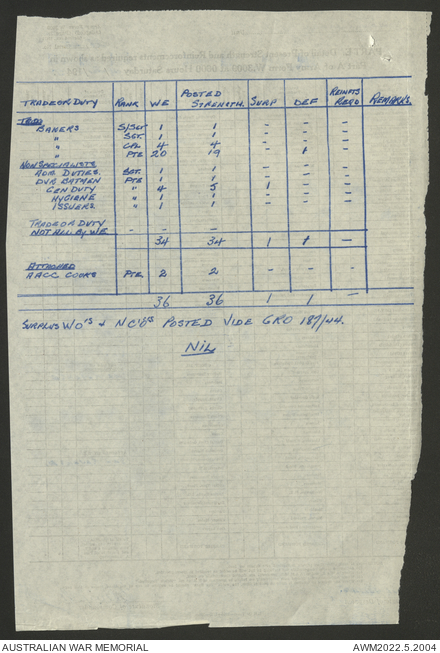 TRADE OR DUTY RANK WE POSTED STRENGTH. SURP DEF REINFTS REQD REMARKS.
BAKERS S/SGT 1 1 - - -
" SGT. 1 1 - - -
" CPL 4 4 - - -
" PTE 20 19 - 1 -
NON SPECIALISTS
ADM DUTIES. SGT. 1 1 - - -
DVR BATMEN PTE 1 1 - - -
GEN DUTY " 4 5 1 - -
HYGIENE " 1 1 - - -
ISSUERS. " 1 1 - - -
TRADE OR DUTY
NOT ALL. By WE - - - - - -
34 34 1 1 -
ATTACHED
AACC COOKS PTE. 2 2 - - -
36 36 1 1 -
SURPLUS WO'S & NCO'S POSTED VIDE GRO 187/44.
NIL
AUSTRALIAN WAR MEMORIAL AWM2022.5.2004